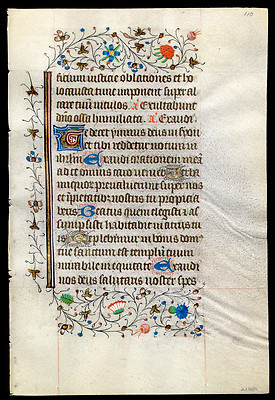 110
ficium iusticie oblaciones et ho
locausta tunc imponent super al
tare tuum uitulos. A Exultabunt
dno ossa humiliata. A Exaudi
Te decet ymnus deus in syon
et tibi reddetur uotum in
ihrlm Exaudi orationem meā
ad te omnis caro veniet Verba
iniquor preualuerunt super nos
et ipietatibus nostris tu propicia
beris Beatus quem elegisti et as
sumpsisti habitabit in atriis tu
is Replebimur in bonis dom⁹
tue sanctum est templū tuum
mirabile in equitate Exaudi
nos deus salutaris noster spes